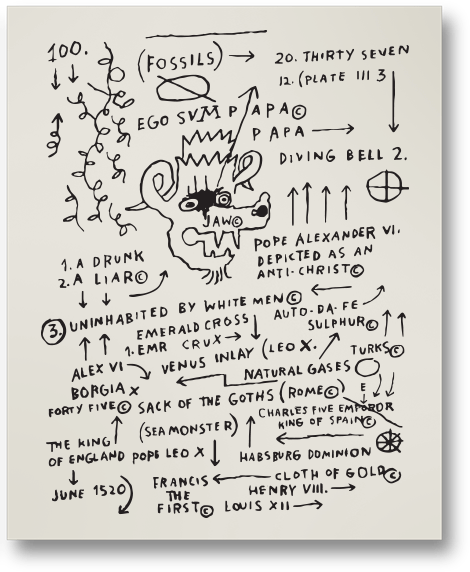 100.
(FOSSILS) → 20. THIRTY SEVEN
12. (PLATE III 3
EGO SVM PAPA©
PAPA →
DIVING BELL 2.
JAW©
POPE ALEXANDER VI.
DEPICTED AS AN
ANTI-CHRIST©
1. A DRUNK
2. A LIAR©
3. UNINHABITED BY WHITE MEN©
AUTO-DA-FE
EMERALD CROSS
SULPHUR©
1. EMR CRUX →
TURKS©
ALEX VI
VENUS INLAY (LEO X.
NATURAL GASES
BORGIA X
E
FORTY FIVE© SACK OF THE GOTHS (ROME©)
CHARLES FIVE EMPEROR
KING OF SPAIN©
(SEA MONSTER)
THE KING
OF ENGLAND POPE LEO X
HABSBURG DOMINION
CLOTH OF GOLD©
JUNE 1520
FRANCIS
THE
FIRST©
HENRY VIII. →
LOUIS XII →